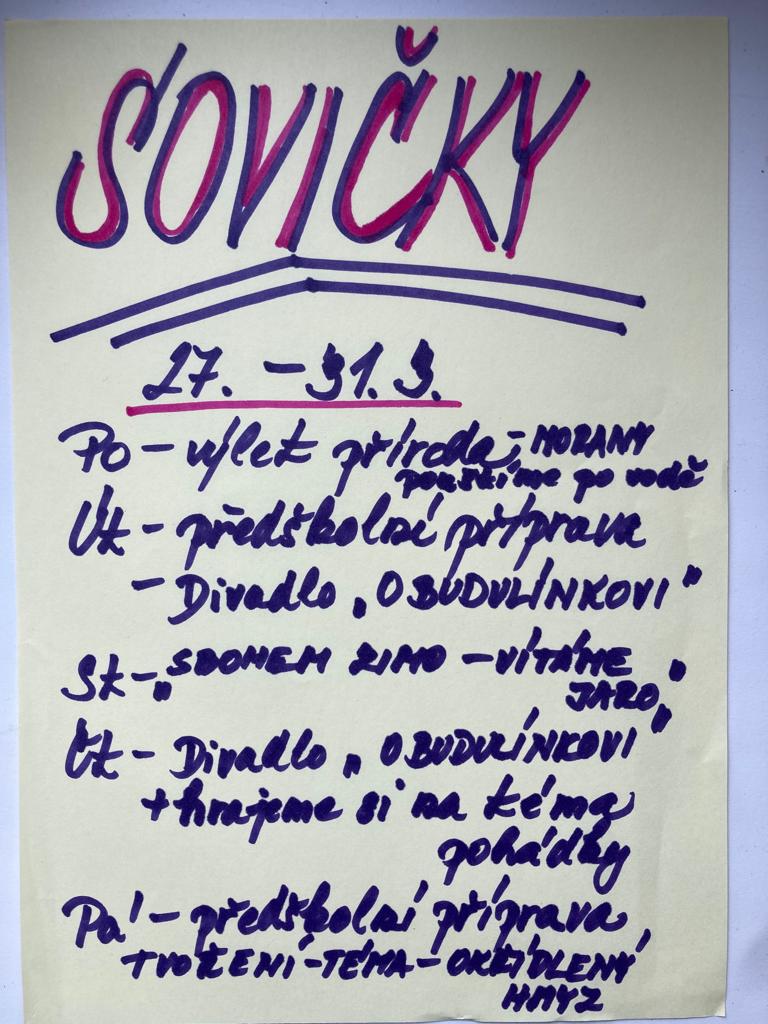 SOVIČKY
27. – 31. 3.
Po – výlet příroda – MORANY
pouštíme po vodě
Út – předškolní příprava
– Divadlo „O BUDULÍNKOVI"
St – „SBOHEM ZIMO – VÍTÁME
JARO"
Čt – Divadlo „O BUDULÍNKOVI"
+ hrajeme si na téma
pohádky
Pá – předškolní příprava,
+ TVOŘENÍ – TÉMA – OKŘÍDLENÝ
HMYZ